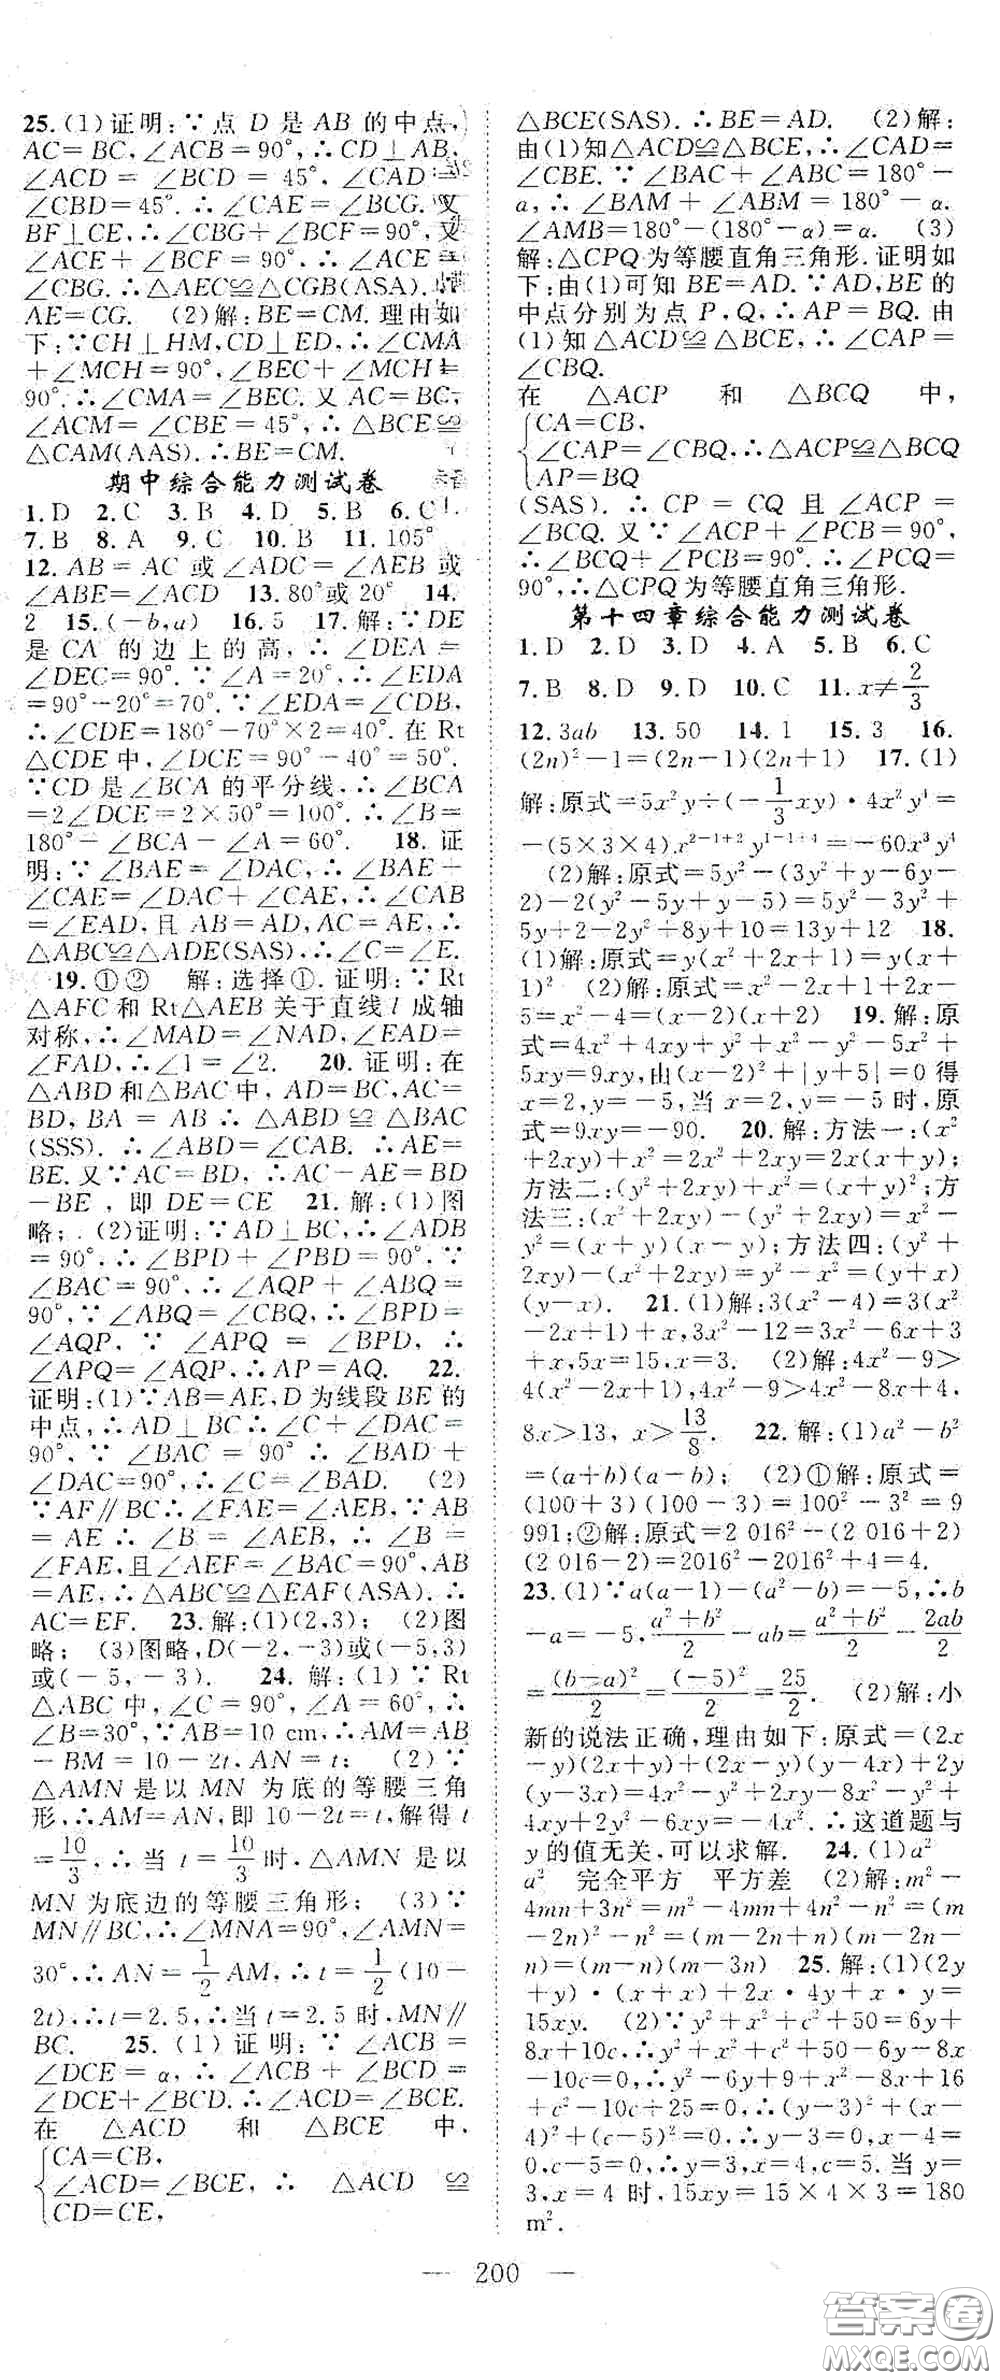 25.(1)证明:∵点 D 是 AB 的中点,
AC=BC,∠ACB=90°,∴CD⊥AB,
∠ACD=∠BCD=45°,∠CAD=
∠CBD=45°.∴∠CAE=∠BCG.又
BF⊥CE,∴∠CBG+∠BCF=90°,又
∠ACE+∠BCF=90°.∴∠ACE=
∠CBG.∴△AEC≌△CGB(ASA).
AE=CG. (2)解:BE=CM.理由如
下:∵CH⊥HM,CD⊥ED,∴∠CMA
+∠MCH=90°,∠BEC+∠MCH=
90°.∴∠CMA=∠BEC.又AC=BC,
∠ACM=∠CBE=45°,∴△BCE≌
△CAM(AAS).∴BE=CM.
期中综合能力测试卷
1.D 2.C 3.B 4.D 5.B 6.C
7.B 8.A 9.C 10.B 11.105°
12.AB=AC或∠ADC=∠AEB或
∠ABE=∠ACD 13.80°或20° 14.
2 15.(-b,a) 16.5 17.解:∵DE
是CA的边上的高,∴∠DEA=
∠DEC=90°.∵∠A=20°,∴∠EDA
=90°-20°=70°.∵∠EDA=∠CDB,
∴∠CDE=180°-70°×2=40°.在Rt
△CDE中,∠DCE=90°-40°=50°.
∵CD是∠BCA的平分线,∴∠BCA
=2∠DCE=2×50°=100°.∴∠B=
180°-∠BCA-∠A=60°. 18.证
明:∵∠BAE=∠DAC,∴∠BAE+
∠CAE=∠DAC+∠CAE,∴∠CAB
=∠EAD,且AB=AD,AC=AE,∴
△ABC≌△ADE(SAS).∴∠C=∠E.
19.①② 解:选择①.证明:∵Rt
△AFC和Rt△AEB关于直线l成轴
对称,∴∠MAD=∠NAD,∠EAD=
∠FAD,∴∠1=∠2. 20.证明:在
△ABD和△BAC中,AD=BC,AC=
BD,BA=AB∴△ABD≌△BAC
(SSS).∴∠ABD=∠CAB.∴AE=
BE.又∵AC=BD,∴AC-AE=BD
-BE,即DE=CE 21.解:(1)图
略;(2)证明:∵AD⊥BC,∴∠ADB
=90°,∴∠BPD+∠PBD=90°.∵
∠BAC=90°,∴∠AQP+∠ABQ=
90°,∵∠ABQ=∠CBQ,∴∠BPD=
∠AQP.∵∠APQ=∠BPD,∴
∠APQ=∠AQP,∴AP=AQ. 22.
证明:(1)∵AB=AE,D为线段BE的
中点,∴AD⊥BC∴∠C+∠DAC=
90°,∵∠BAC=90°∴∠BAD+
∠DAC=90°,∴∠C=∠BAD. (2)
∵AF∥BC∴∠FAE=∠AEB,∵AB
=AE∴∠B=∠AEB,∴∠B=
∠FAE,且∠AEF=∠BAC=90°,AB
=AE,∴△ABC≌△EAF(ASA).∴
AC=EF. 23.解:(1)(2,3); (2)图
略; (3)图略,D(-2,-3)或(-5,3)
或(-5,-3). 24.解:(1)∵Rt
△ABC中,∠C=90°,∠A=60°,∴
∠B=30°,∵AB=10 cm,∴AM=AB
-BM=10-2t,AN=t; (2)∵
△AMN是以MN为底的等腰三角
形,∴AM=AN,即10-2t=t,解得t
=10/3,∴当t=10/3时,△AMN是以
MN为底边的等腰三角形; (3)∵
MN∥BC,∴∠MNA=90°,∠AMN=
30°,∴AN=1/2AM,∴t=1/2(10-
2t),∴t=2.5,∴当t=2.5时,MN∥
BC. 25.(1)证明:∵∠ACB=
∠DCE=α,∴∠ACB+∠BCD=
∠DCE+∠BCD.∴∠ACD=∠BCE.
在△ACD和△BCE中,
CA=CB,
∠ACD=∠BCE,∴△ACD≌
CD=CE,
△BCE(SAS).∴BE=AD. (2)解:
由(1)知△ACD≌△BCE,∴∠CAD=
∠CBE.∵∠BAC+∠ABC=180°-
α,∴∠BAM+∠ABM=180°-α.
∠AMB=180°-(180°-α)=α. (3)
解:△CPQ为等腰直角三角形.证明如
下:由(1)可知BE=AD.∵AD,BE的
中点分别为点P,Q,∴AP=BQ.由
(1)知△ACD≌△BCE,∴∠CAP=
∠CBQ.
在△ACP和△BCQ中,
CA=CB,
∠CAP=∠CBQ,∴△CAP≌△BCQ
AP=BQ
(SAS).∴CP=CQ且∠ACP=
∠BCQ.又∵∠ACP+∠PCB=90°,
∴∠BCQ+∠PCB=90°.∴∠PCQ=
90°,∴△CPQ为等腰直角三角形.
第十四章综合能力测试卷
1.D 2.D 3.D 4.A 5.B 6.C
7.B 8.D 9.D 10.C 11.x≠2/3
12.3ab 13.50 14.1 15.3 16.
(2n)²-1=(2n-1)(2n+1) 17.(1)
解:原式=5x²y÷(-1/3xy)·4x²y⁴=
-(5×3×4)x²⁻¹⁺²y¹⁻¹⁺⁴=-60x³y⁴
(2)解:原式=5y²-(3y²+y-6y-
2)-2(y²-5y+y-5)=5y²-3y²+
5y+2-2y²+8y+10=13y+12 18.
(1)解:原式=y(x²+2x+1)=y(x+
1)² (2)解:原式=x²-2x+1+2x-
5=x²-4=(x-2)(x+2) 19.解:原
式=4x²+4xy+y²+x²-y²-5x²+
5xy=9xy,由(x-2)²+|y+5|=0得
x=2,y=-5,当x=2,y=-5时,原
式=9xy=-90. 20.解:方法一:(x²
+2xy)+x²=2x²+2xy=2x(x+y);
方法二:(y²+2xy)+x²=(x+y)²;方
法三:(x²+2xy)-(y²+2xy)=x²-
y²=(x+y)(x-y);方法四:(y²+
2xy)-(x²+2xy)=y²-x²=(y+x)
(y-x). 21.(1)解:3(x²-4)=3(x²
-2x+1)+x,3x²-12=3x²-6x+3
+x,5x=15,x=3. (2)解:4x²-9>
4(x²-2x+1),4x²-9>4x²-8x+4,
8x>13,x>13/8. 22.解:(1)a²-b²
=(a+b)(a-b); (2)①解:原式=
(100+3)(100-3)=100²-3²=9
991;②解:原式=2 016²-(2 016+2)
(2 016-2)=2016²-2016²+4=4.
23.(1)∵a(a-1)-(a²-b)=-5,∴b
-a=-5,(a²+b²)/2-ab=(a²+b²)/2-2ab/2
=(b-a)²/2=(-5)²/2=25/2. (2)解:小
新的说法正确,理由如下:原式=(2x
-y)(2x+y)+(2x-y)(y-4x)+2y
(y-3x)=4x²-y²+2xy-8x²-y²+
4xy+2y²-6xy=-4x².∴这道题与
y的值无关,可以求解. 24.(1)a²
a² 完全平方 平方差 (2)解:m²-
4mn+3n²=m²-4mn+4n²-n²=(m
-2n)²-n²=(m-2n+n)(m-2n-
n)=(m-n)(m-3n) 25.解:(1)(2y
+y)·(x+x)+2x·4y+x·y=
15xy. (2)∵y²+x²+c²+50=6y+
8x+10c,∴y²+x²+c²+50-6y-8x
-10c=0,∴y²-6y+9+x²-8x+16
+c²-10c+25=0,∴(y-3)²+(x-
4)²+(c-5)²=0,∴y-3=0,x-4=
0,c-5=0,∴y=3,x=4,c=5.当y=
3,x=4时,15xy=15×4×3=180
m².
200
答案卷
MXQE.COM